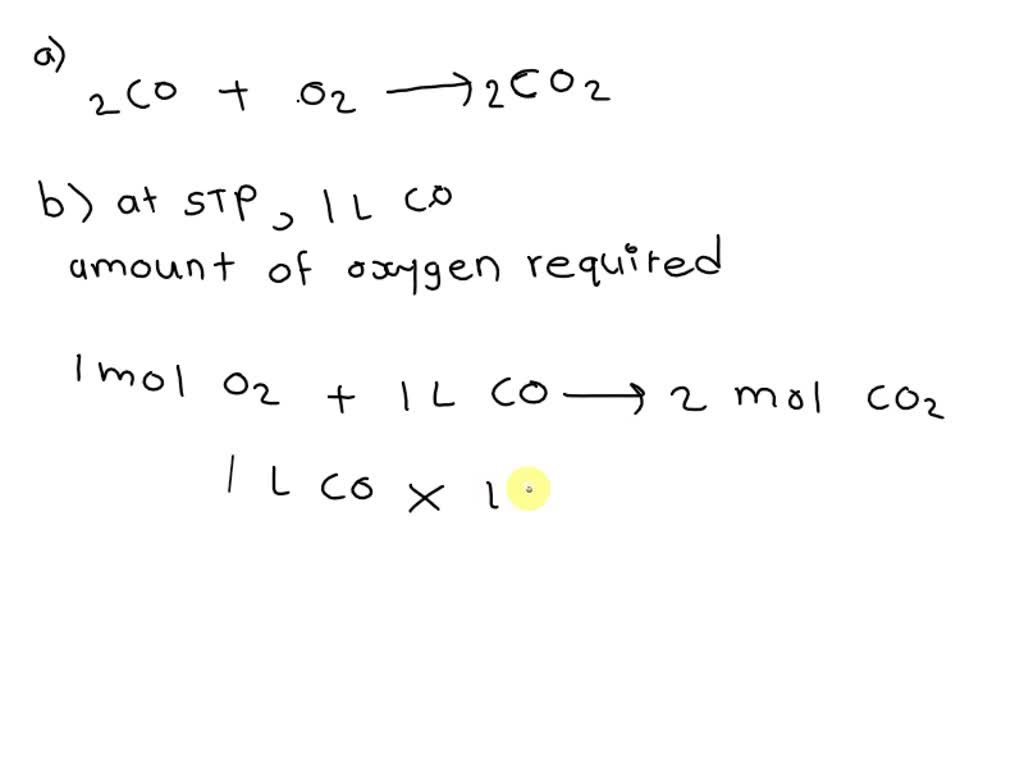 a)
2CO + O2 → 2CO2
b) at STP, 1 L CO
amount of oxygen required
1 mol O2 + 1 L CO → 2 mol CO2
1 L CO × 1